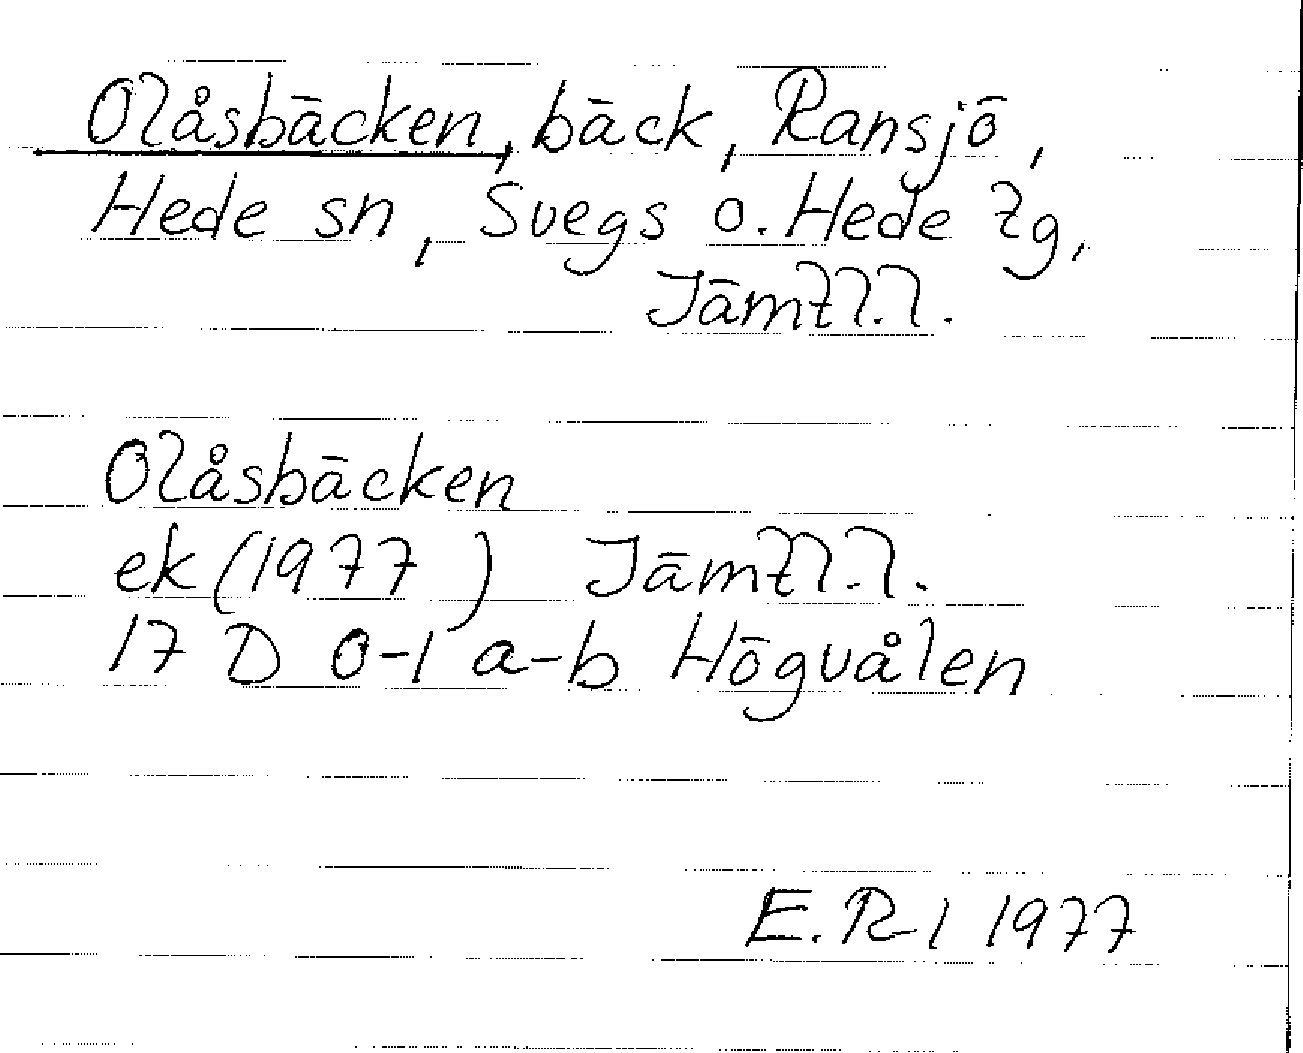 Olåsbäcken, bäck, Ransjö,
Hede sn, Svegs o. Hede tg,
Jämtl.l.
Olåsbäcken
ek (1977) Jämtl.l.
17 D 0-1 a-b Högvålen
E.Rl 1977